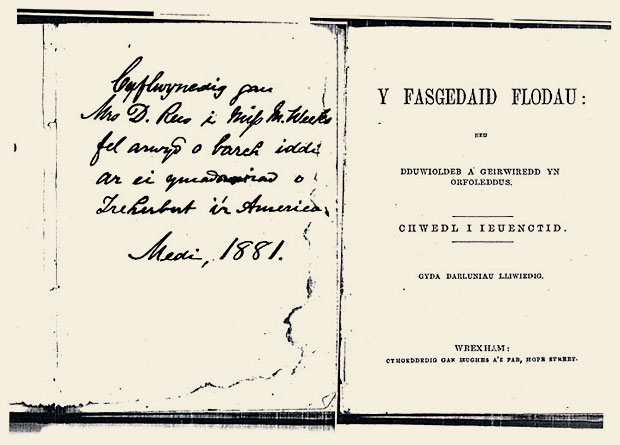 Cyflwynedig gan
Mrs D. Rees i Miss M. Weeks
fel arwydd o barch iddi
ar ei ymadawiad o
Treherbert i'r America
Medi, 1881.
Y FASGEDAID FLODAU:
NEU
DDUWIOLDEB A' GEIRWIREDD YN
ORFOLEDDUS.
CHWEDL I IEUENCTID.
GYDA DARLUNIAU LLIWIEDIG.
WREXHAM:
CYHOEDDEDIG GAN HUGHES A'E FAB, HOPE STREET.